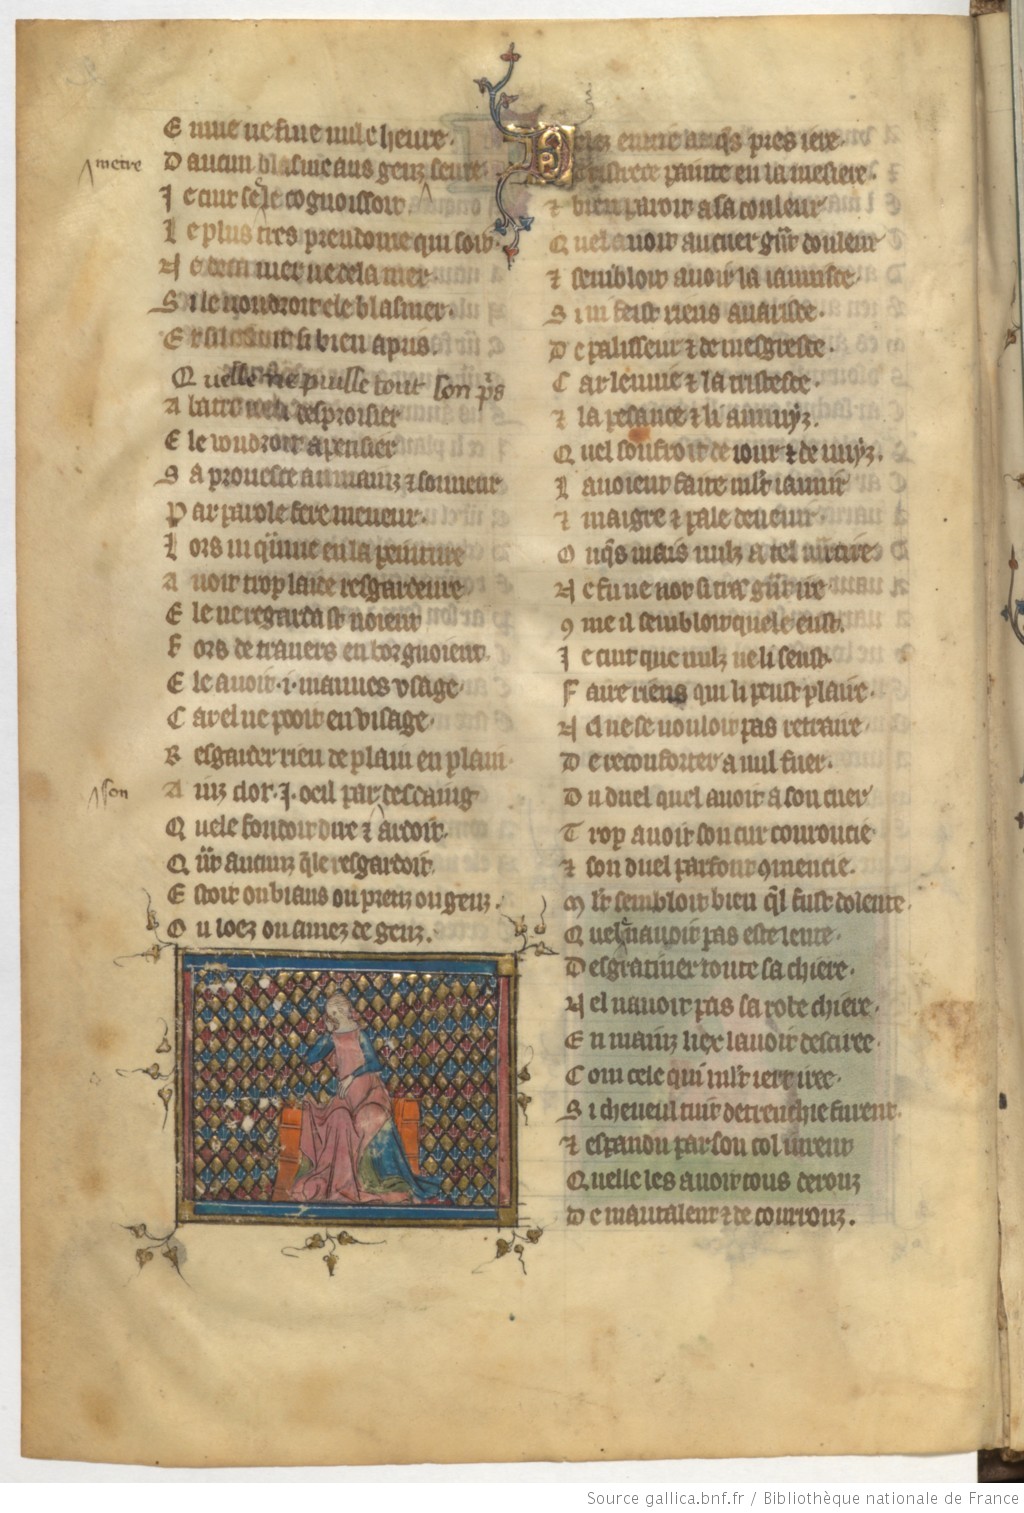 E nuie ne fine nule heure.
D aucun blasme aus genz seure
metre
J e cuit sele cognoissoit.
L e plus tres preudome qui soit.
N e deca mer ne dela mer.
S i le voudroit ele blasmer.
E t sil estoit si bien apris.
Q uelle ne puisse tout son pris
A batre desproisier
E le voudroit apetisier
S a prouesce au mainz & sonneur
P ar parole fere meneur.
L ors ui quenuie en la peinture
A uoit trop laide resgardeure
E le ne regardast noient
F ors de trauers en borgnoient.
E le auoit .i. mauues vsage.
C ar el ne pooit en visage.
R esgarder rien de plain en plain.
A inz clot .J. oeil par desdaing
son
Q uele fondoit dire & ardoit.
Q ant aucuns qele resgardoit.
E stoit ou biaus ou preuz ou genz.
O u loez ou amez de genz.
D elez enuie auqs pres iere.
T ristrece painte en la mesiere.
& bien paroit a sa couleur
Q uel auoit au cuer gnt douleur
& sembloit auoir la iaunisce.
S i ni feist riens auarisce.
D e palisseur & de mesgresce.
C ar lenuie & la tristesce.
& la pesance & li annuyz.
Q uel soufroit de iour & de nuyz.
L auoient faite mlt iaunir
& maigre & pale deuenir.
O nqs mais nulz a tel martire
N e fu ne not si tres gnt ire
9 me il sembloit quele eust.
J e cuit que nulz ne li seust.
F aire riens qui li peust plaire.
N el ne se vouloit pas retraire.
D e reconforter a nul fuer.
D u duel quel auoit a son cuer
T rop auoit son cur couroucie
& son duel parfont 9mencie.
M lt sembloit bien ql fust dolente.
Q uel nauoit pas este lente.
D esgratiner toute sa chiere.
N el nauoit pas sa robe chiere.
E n mainz liex lauoit desciree.
C om cele qui mlt iert iree.
S i cheueul tuit detrenchie furent.
& espandu par son col iurent
Q uelle les auoit tous derouz
D e mautalent & de courrouz.
Source gallica.bnf.fr / Bibliothèque nationale de France